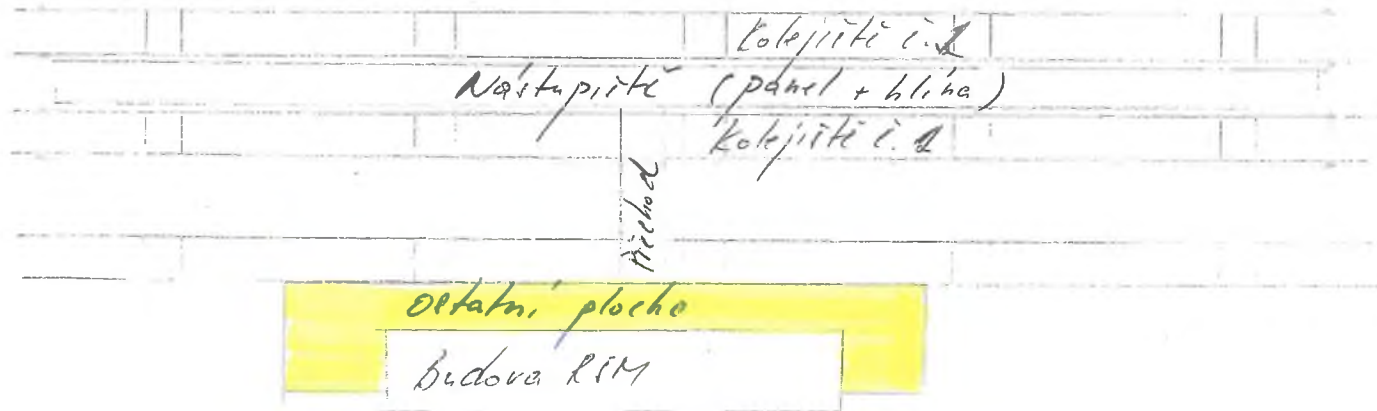 Kolejiště č. 2
Nástupiště (panel + hlína)
Kolejiště č. 1
Přechod
Ostatní plocha
Budova RSM